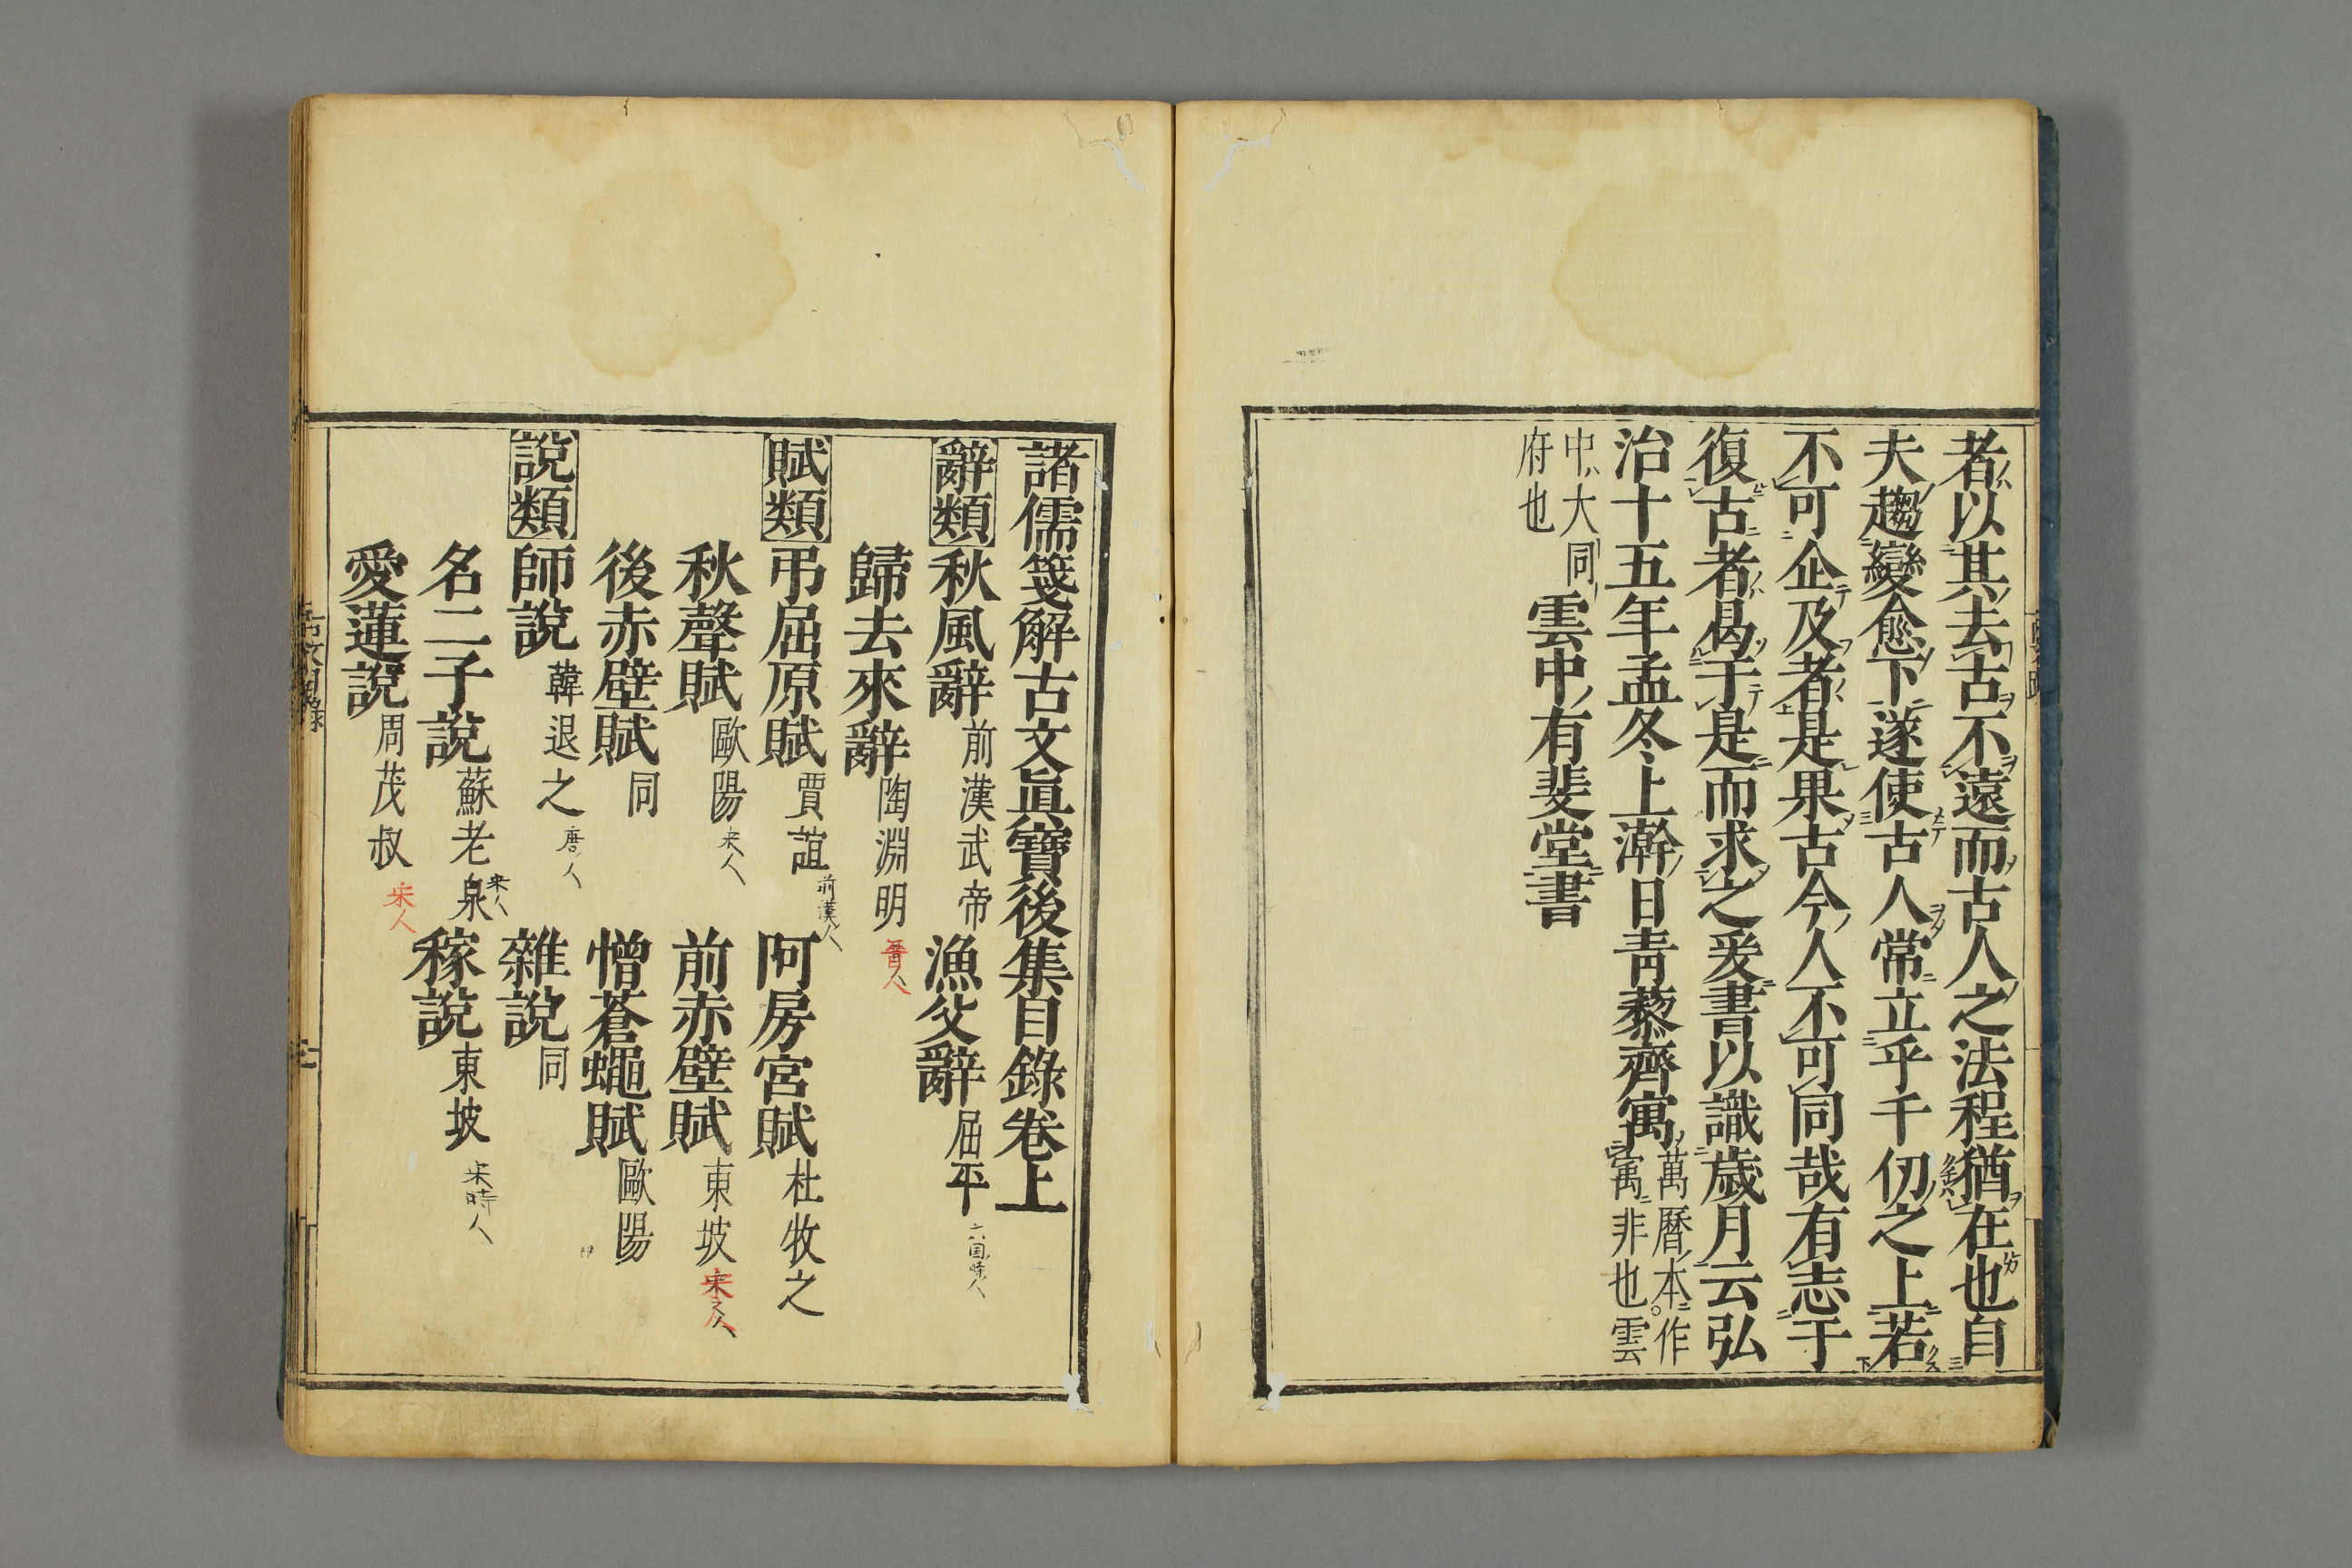 者以其去古不遠而古人之法程猶在也自
夫趨變愈下遂使古人常立乎千仞之上若
不可企及者是果古今人不可同哉有志于
復古者曷于是而求之爰書以識歲月云弘
治十五年孟冬上澣日靑藜齋寓萬曆本作寓非也雲
中大同府也雲中有斐堂書
諸儒箋解古文眞寶後集目錄卷上
辭類 秋風辭 前漢武帝 漁父辭 屈平 六国時人
歸去來辭 陶淵明 晋人
賦類 弔屈原賦 賈誼 前漢人 阿房宮賦 杜牧之
秋聲賦 歐陽 宋人 前赤壁賦 東坡 宋人
後赤壁賦 同 憎蒼蠅賦 歐陽
說類 師說 韓退之 唐人 雜說 同
名二子說 蘇老泉 宋人 稼說 東坡 宋時人
愛蓮說 周茂叔 宋人